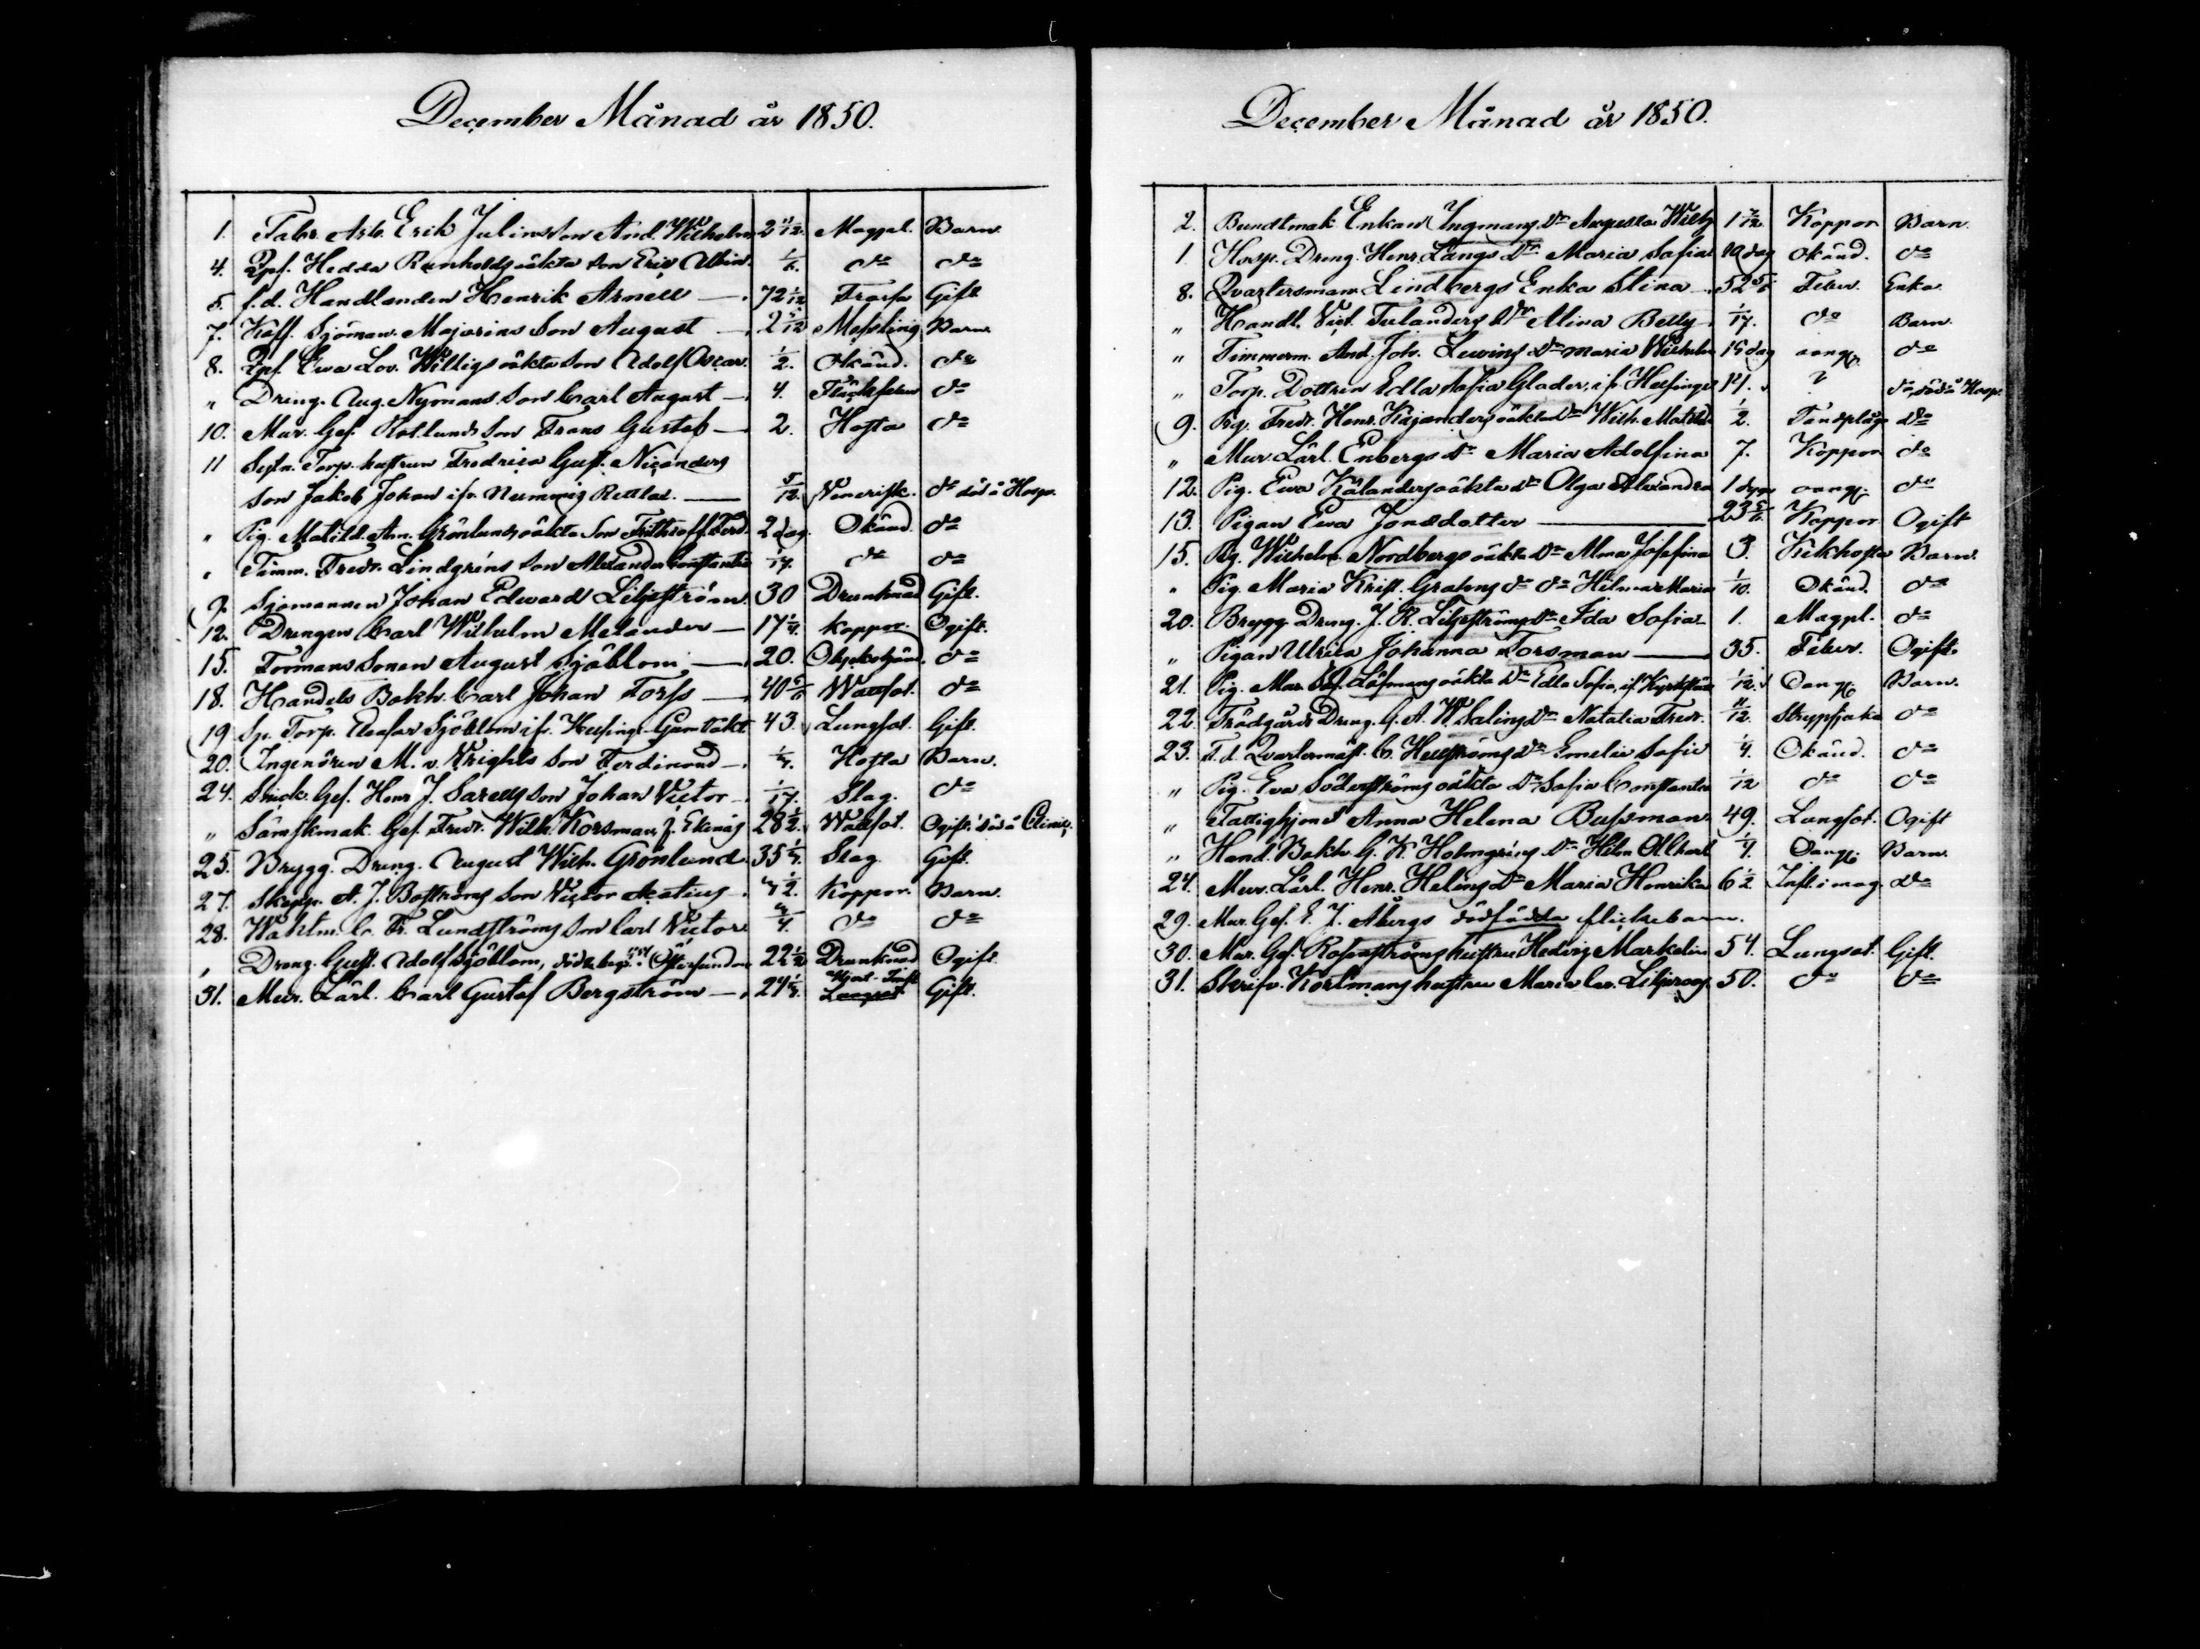 December Månad år 1850.
1. Fabr. Arb. Erik Julins son And. Wilhelm 2 11/12. Magpl. Barn
4. Qpf. Hedda Renholds oäkta son Eric Albin. 1/6. do do
5. f.d. Handlanden Henrik Arnell — 72 1/12 Frossa Gift
7. Koff. Sjöman Majorins Son August — 2 5/12 Messling Barn
8. Qpf. Ewa Lov. Willigs oäkta son Adolf Oscar. 1/2. Okänd. do
„ Dreng. Aug. Nymans Son Carl August — 4. Fläckfeber do
10. Mur. Gef. Kollunds Son Frans Gustaf — 2. Hosta do
11 Sytn. Torp. hustrun Fredrica Gust. Nicanders
son Jakob Johan ifr. Nummis Rettlae. — 5/12. Venerisk. do död å Hosp.
„ Pig. Matild. Am. Grönlunds oäkta Son Frithioff Ferd. 2 dag. Okänd do
„ Timm. Fredr. Lindgréns Son Alexander Constantin 1/17. do do
9. Sjömannen Johan Edward Liljeström. 30 Drunknad Gift.
12. Drengen Carl Wilhelm Melander — 17 1/4. Koppor. Ogift.
15. Formans Sonen August Sjöblom — 20. Olyckshänd. do
18. Handels Bokh. Carl Johan Forss — 40 5/6 Wattsot. do
19 Sp. Torp. Sjöblom ifr. Helsinge Gamtäkt 43. Lungsot. Gift.
20. Ingeniören M. v. Wrights Son Ferdinand — 1/4. Hosta Barn.
24. Snick. Gef. Henr. J. Sarells son Johan Victor — 1/17. Slag. do
„ Sämskmak. Gef. Fredr. Wilh. Korsman, f. Ekenäs 28 1/2. Wattsot. Ogift. död å Clinic.
25. Brygg. Dreng. August Wilh. Grönlund. 35 1/4. Slag Gift.
27. Skepp. A. J. Boströms Son Victor Acatius. 4 1/2. Koppor. Barn.
28. Waktm. C. Fr. Lundströms Son Carl Victor 3/4. do do
„ Dreng. Gust. Adolf Sjöblom, Östersundom 22 1/2 Drunknad Ogift.
31. Mur. Lärl. Carl Gustaf Bergström — 24 1/4. Lungsot Gift.
December Månad år 1850.
2. Bundtmak. Enkan Ingmans Dr Augusta Wilh. 1 7/12. Koppor Barn.
1. Hosp. Dreng. Henr. Längs Dr Maria Sofia 19 dag okänd. do
8. Qvartersman Lindbergs Enka Stina — 52 5/6 Feber. Enka.
„ Handl. Vict. Tulanders Dr Alina Betty 1/17. do Barn.
„ Timmerm. And. Joh. Lewins Dr Maria Wilhelm 15 dag oang. do
„ Torp. Dottren Edla Sofia Glader, ifr. Helsinge 14. ? do, död å Hosp.
9. Pig. Fredr. Henr. Kajanders oäkta Dr Wilh. Matild. 1/2. Tandplåga do
„ Mur. Lärl. Enbergs Dr Maria Adolfina 7. Koppor do
12. Pig. Ewa Kälanders oäkta Dr Olga Alexandra 1 dygn oang. do
13. Pigan Ewa Jonsdotter — 23 5/6 Koppor Ogift
15. Pig. Wilhelm. Nordbergs oäkta Dr Alma Josefina 3. Kikhosta Barn.
„ Pig. Maria Krist. Grahns do do Hilma Maria 1/10. Okänd. do
20. Brygg. Dreng. J. R. Liljeströms Dr Ida Sofia 1. Magpl. do
„ Pigan Ulrica Johanna Forsman — 35. Feber. Ogift.
21. Pig. Mar. Löfmans oäkta Dr Edla Sofia, if. Kyrkslätt 1/12. Oang. Barn.
22 Trädgårds Dreng. G. A. W. Salins Dr Natalia Fredr. 11/12. Strypsjuka do
23. F.d. Qvartermäst. C. Hellströms Dr Emelie Sofie 1/4. Okänd. do
„ Pig. Eva Söderströms oäkta Dr Sofia Constantia 1/12 do do
„ Fattighjonet Anna Helena Bussman 49. Lungsot. Ogift
„ Hand. Bokh. G. K. Holmgréns Dr Hilm 1/4. Oang. Barn.
24. Mur. Lärl. Henr. Helins Dr Maria Henrika 6 1/2 Infl. i mag. do
29. Mur. Gef. E. J. Åbergs dödfödda flickebarn.
30. Mur. Gef. Rosenströms hustru Hedvig Markelin 54. Lungsot. Gift.
31. Skrifv. Korsmans hustru Maria Liljeroos 50. do do